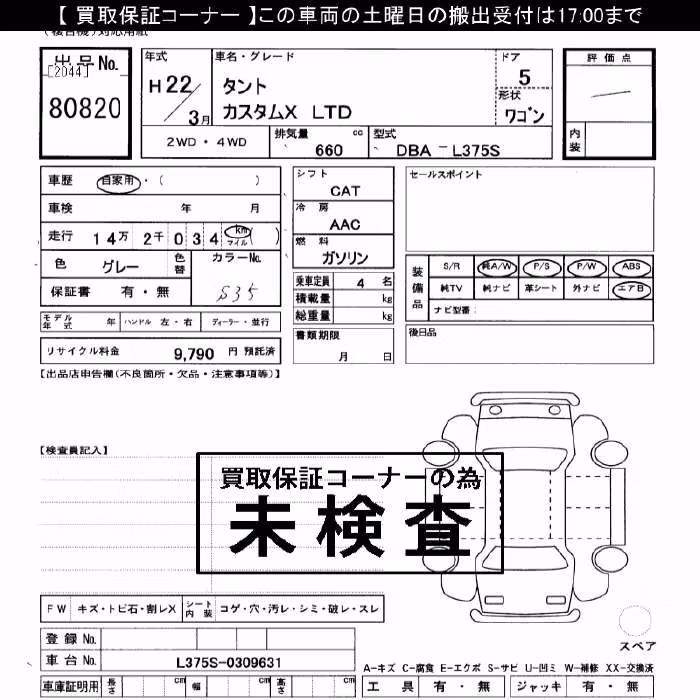 【 買取保証コーナー 】この車両の土曜日の搬出受付は17:00まで
出品No.
[2044]
80820
年式
H 22/3月
車名・グレード
タント
カスタムX LTD
ドア
5
形状
ワゴン
評価点
内装
2WD・4WD
排気量 660 cc
型式 DBA - L375S
車歴 自家用・( )
車検 年 月
走行 14万 2千 034 km マイル ( )
色 グレー 色替 カラーNo.
保証書 有・無 S35
シフト
CAT
冷房
AAC
燃料
ガソリン
乗車定員 4 名
積載量 kg
総重量 kg
書類期限
月 日
セールスポイント
装備品
S/R 純A/W P/S P/W ABS
純TV 純ナビ 革シート 外ナビ エアB
ナビ型番:
後日品
モデル年式 年 ハンドル 左・右 ディーラー・並行
リサイクル料金 9,790 円 預託済
【出品店申告欄(不良箇所・欠品・注意事項等)】
【検査員記入】
買取保証コーナーの為
未検査
FW キズ・トビ石・割レX シート内装 コゲ・穴・汚レ・シミ・破レ・スレ
登録No.
車台No. L375S-0309631
車庫証明用 長さ cm 幅 cm 高さ cm
スペア
A-キズ C-腐食 E-エクボ S-サビ U-凹ミ W-補修 XX-交換済
工具 有・無 ジャッキ 有・無